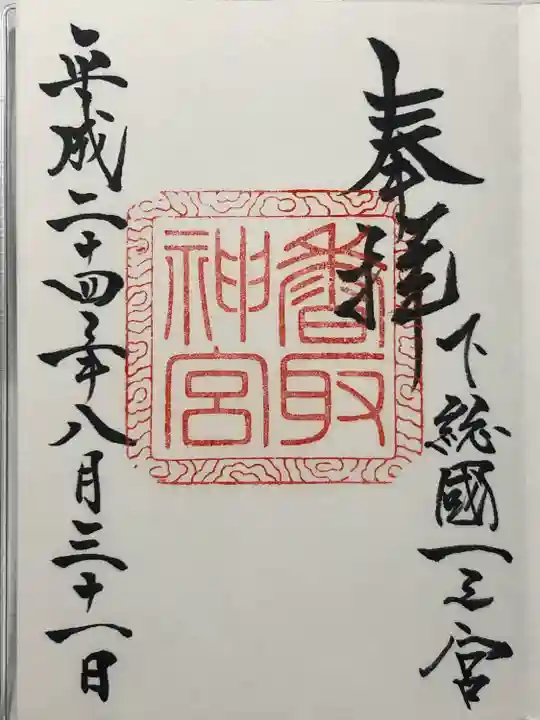 奉拝
下総國一之宮
香取
神宮
平成二十四年八月三十一日